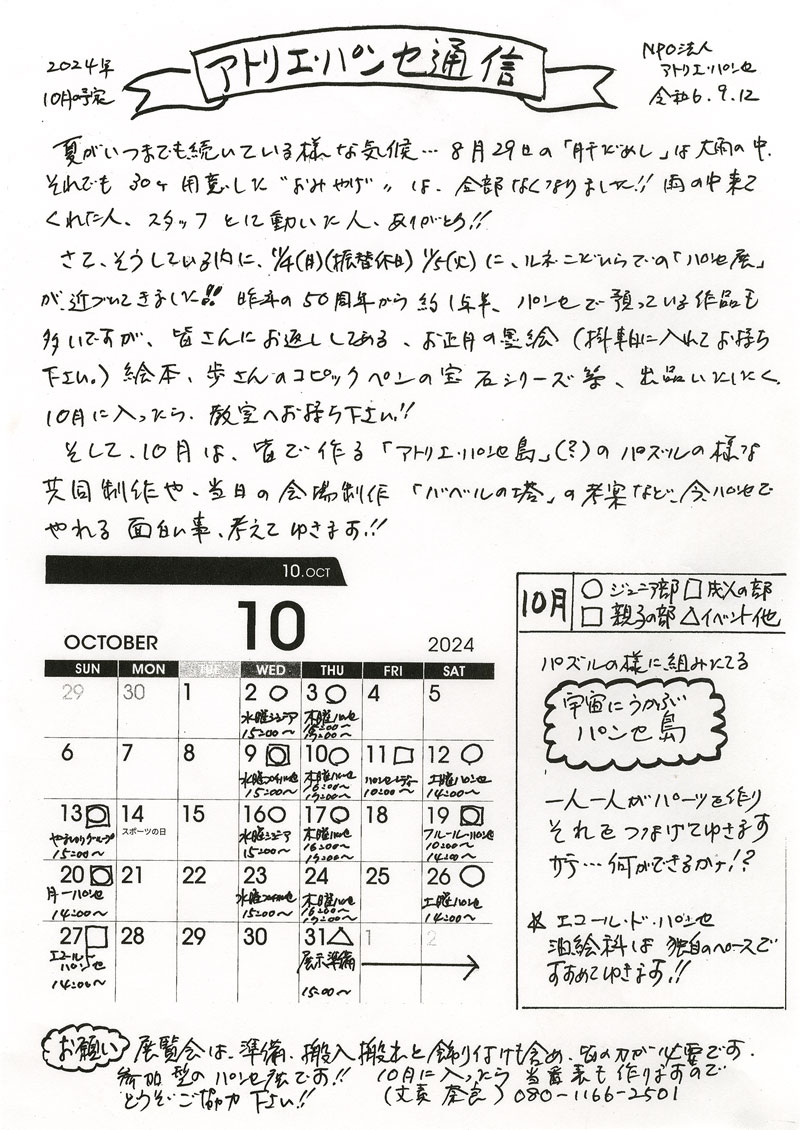 2024年
10月の予定
アトリエ・パンセ通信
NPO法人
アトリエ・パンセ
令和6.9.12
夏がいつまでも続いている様な気候… 8月29日の「肝だめし」は大雨の中、
それでも 30ヶ用意した“おみやげ”は、全部なくなりました!! 雨の中来て
くれた人、スタッフとして動いた人、ありがとう!!
さて、そうしている内に、11/4(月)(振替休日) 11/5(火)に、ルネこだいらでの「パンセ展」
が、近づいてきました!! 昨年の50周年から約1年半、パンセで預っている作品も
多いですが、皆さんにお返ししてある、お正月の墨絵(掛軸に入れてお持ち
下さい。)絵本、歩さんのコピックペンの宝石シリーズ等、出品いたしたく、
10月に入ったら、教室へお持ち下さい!!
そして、10月は、皆で作る「アトリエ・パンセ島」(?)のパズルの様な
共同制作や、当日の会場制作「バベルの塔」の考案など、今パンセで
やれる面白い事、考えてゆきます!!
10.OCT
10
OCTOBER 2024
SUN MON TUE WED THU FRI SAT
29 30 1 2○ 3○ 4 5
水曜ジュニア 15:00〜
木曜パンセ 16:00〜 19:00〜
6 7 8 9 10○ 11□ 12○
15:00〜
木曜パンセ 16:00〜 19:00〜
パンセレディー 10:00〜
土曜パンセ 14:00〜
13 14 15 16○ 17○ 18 19
15:00〜
スポーツの日
水曜ジュニア 15:00〜
木曜パンセ 16:00〜 19:00〜
フルール・パンセ 10:00〜 14:00〜
20 21 22 23 24 25 26○
月一パンセ 14:00〜
15:00〜
木曜パンセ 16:00〜 19:00〜
土曜パンセ 14:00〜
27□ 28 29 30 31△ 1 2
エコール・ド・パンセ 14:00〜
展示準備 15:00〜
10月
○ジュニア部 □成人の部
□親子の部 △イベント他
パズルの様に組みたてる
宇宙にうかぶ
パンセ島
一人一人がパーツを作り
それをつなげてゆきます
サテ…何ができるかナ!?
＊エコール・ド・パンセ
油絵科は独自のペースで
すすめてゆきます!!
お願い 展覧会は、準備、搬入搬出と飾り付けも含め、皆の力が必要です。
参加型のパンセ展です!! 10月に入ったら当番表も作りますので
どうぞご協力下さい!! 080-1166-2501